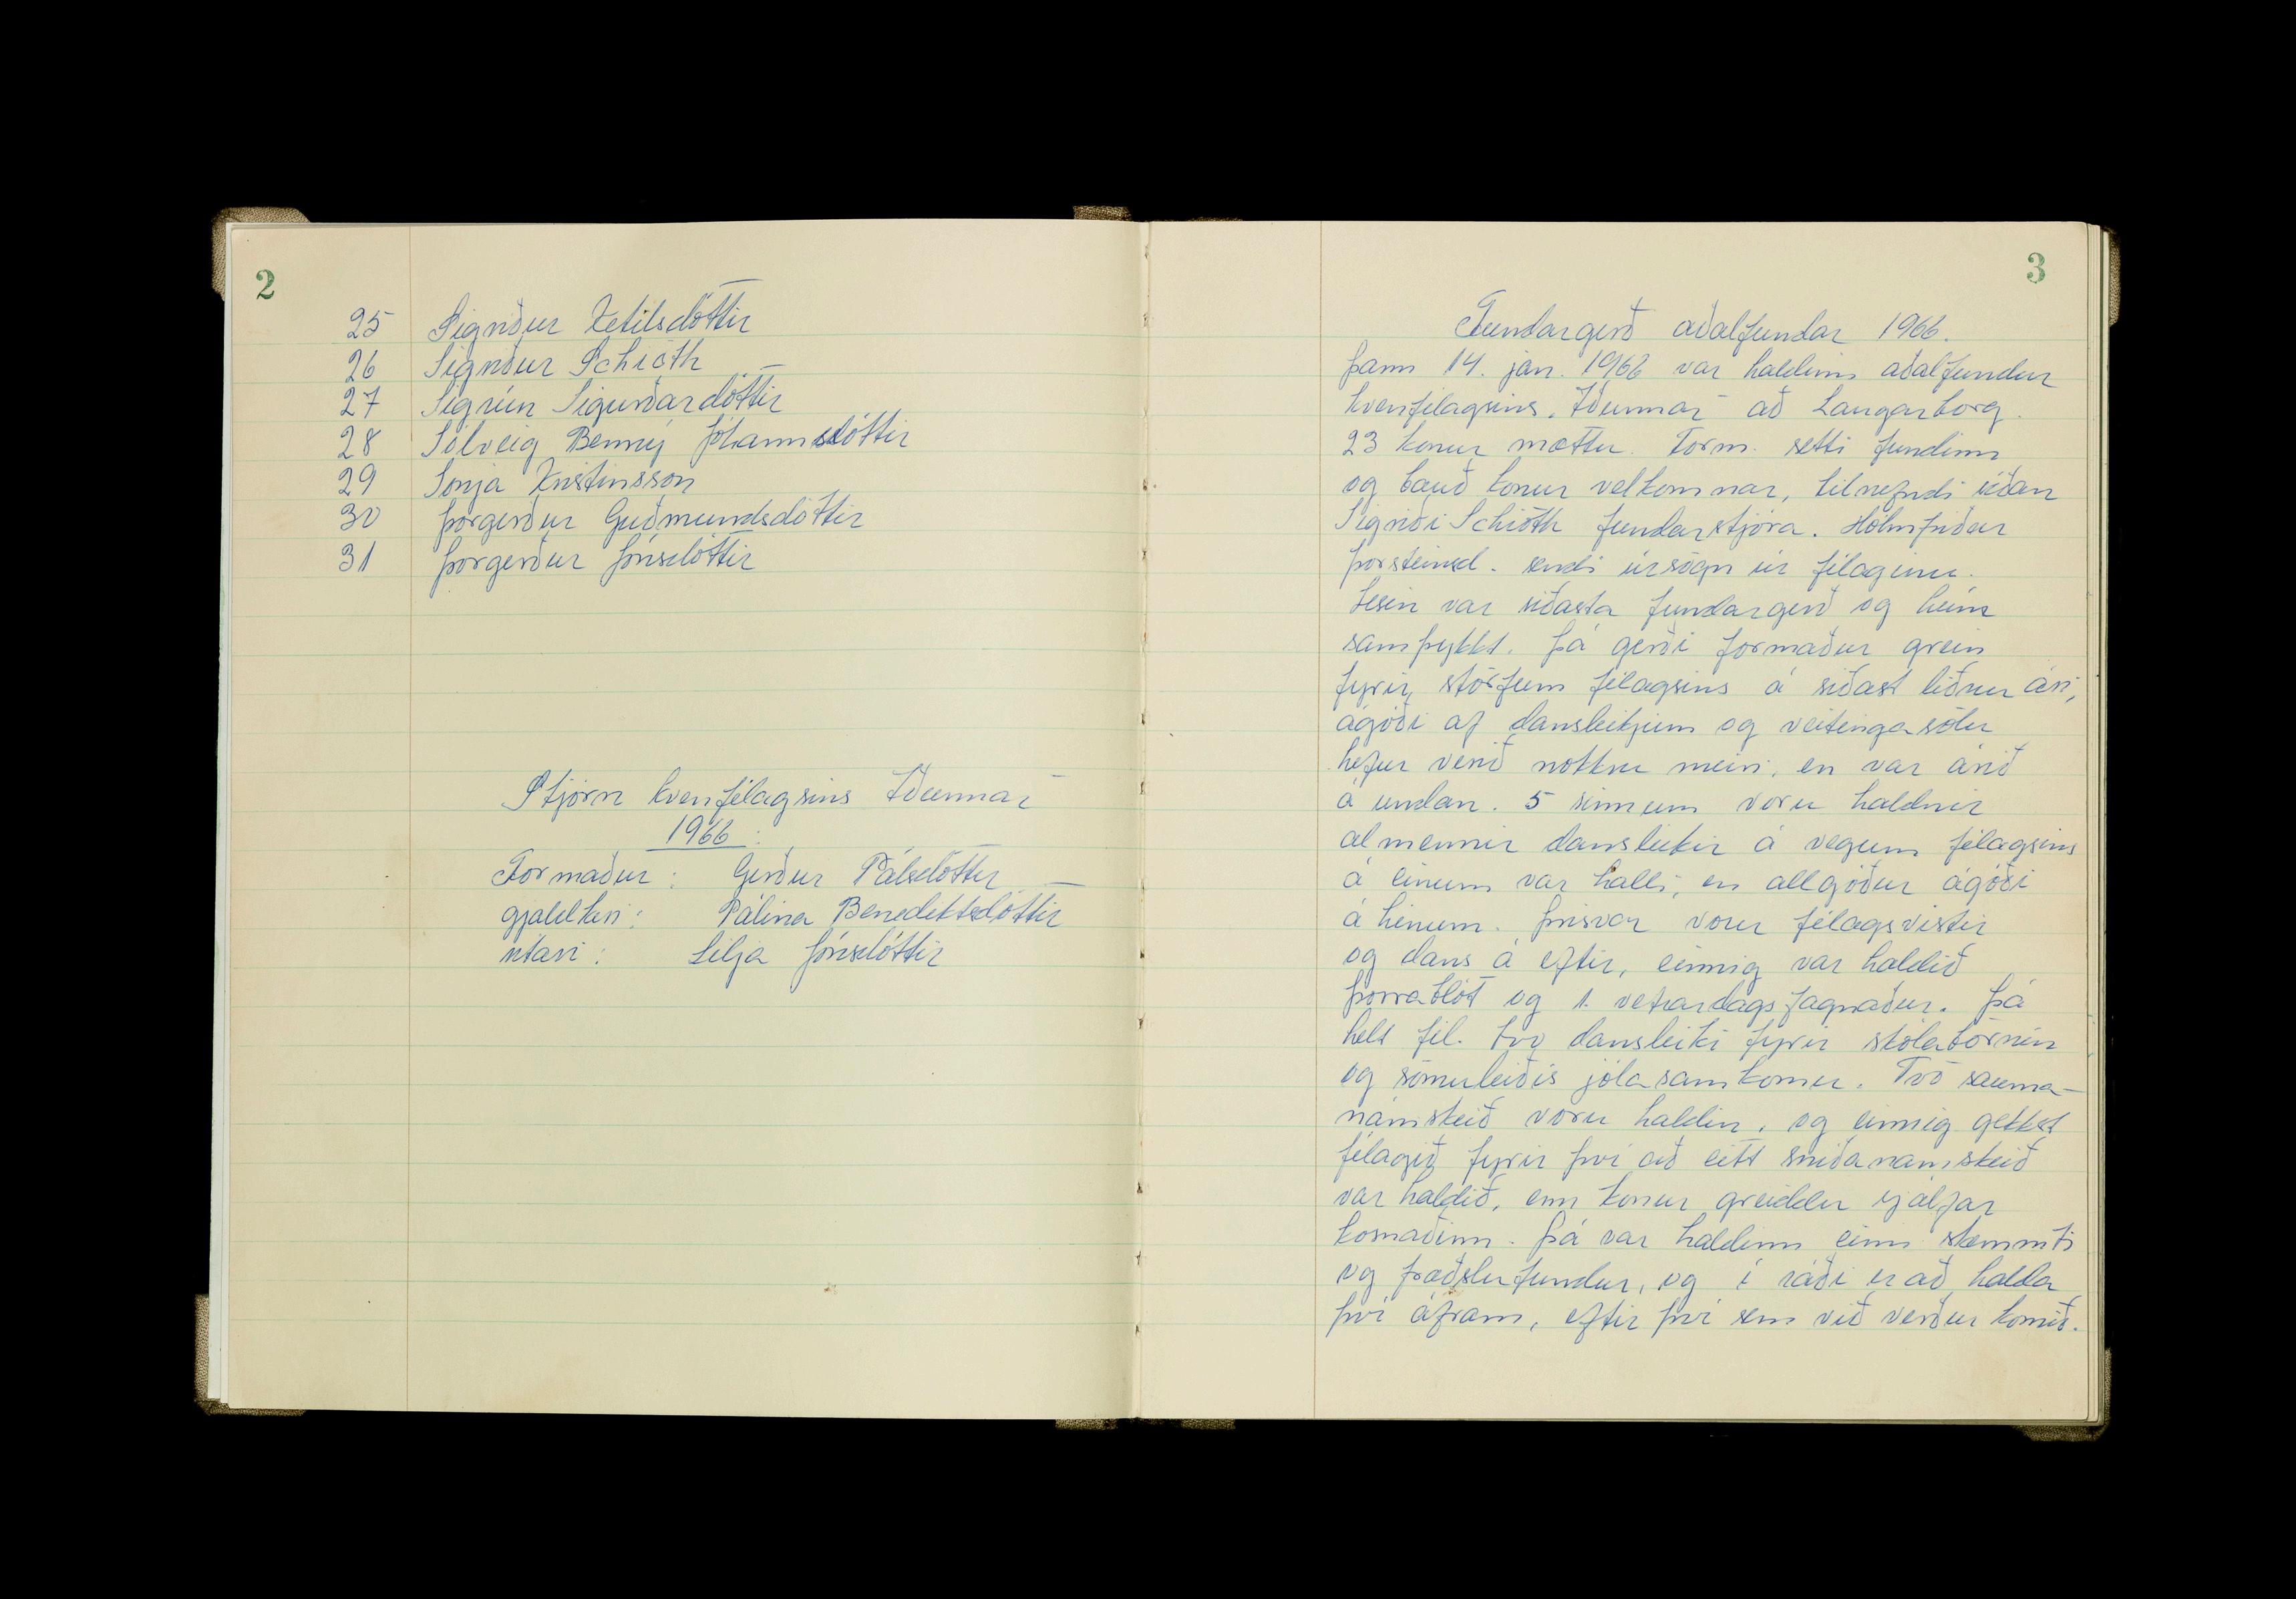 2
25 Sigríður Ketilsdóttir
26 Sigríður Schiöth
27 Sigrún Sigurðardóttir
28 Sólveig Benný Jóhannsdóttir
29 Sonja Kristinsson
30 Þorgerður Guðmundsdóttir
31 Þorgerður Jónsdóttir
Stjórn kvenfélagsins Iðunnar
1966:
Formaður: Gerður Pálsdóttir
gjaldkeri: Pálína Benediktsdóttir
ritari: Lilja Jónsdóttir
3
Fundargerð aðalfundar 1966.
Þann 14. jan. 1966 var haldinn aðalfundur
kvenfélagsins Iðunnar að Laugarborg.
23 konur mættu. Form. setti fundinn
og bauð konur velkomnar, tilnefndi síðan
Sigríði Schiöth fundarstjóra. Hólmfríður
Þorsteinsd. sendi úrsögn úr félaginu.
Lesin var síðasta fundargerð og hún
samþykkt. Þá gerði formaður grein
fyrir störfum félagsins á síðast liðnu ári,
ágóði af dansleikjum og veitingasölu
hefur verið nokkru meiri, en var árið
á undan. 5 sinnum voru haldnir
almennir dansleikir á vegum félagsins
á einum var halli, en allgóður ágóði
á hinum. Þrisvar voru félagsvistir
og dans á eftir, einnig var haldið
þorrablót og 1. vetrardagsfagnaður. Þá
helt fél. tvo dansleiki fyrir skólabörnin
og sömuleiðis jólasamkomu. Tvö sauma-
námskeið voru haldin, og einnig gekkst
félagið fyrir því að eitt sniðanámskeið
var haldið, enn konur greiddu sjálfar
kosnaðinn. Þá var haldinn einn skemmti
og fræðslufundur, og í ráði er að halda
því áfram, eftir því sem við verður komið.